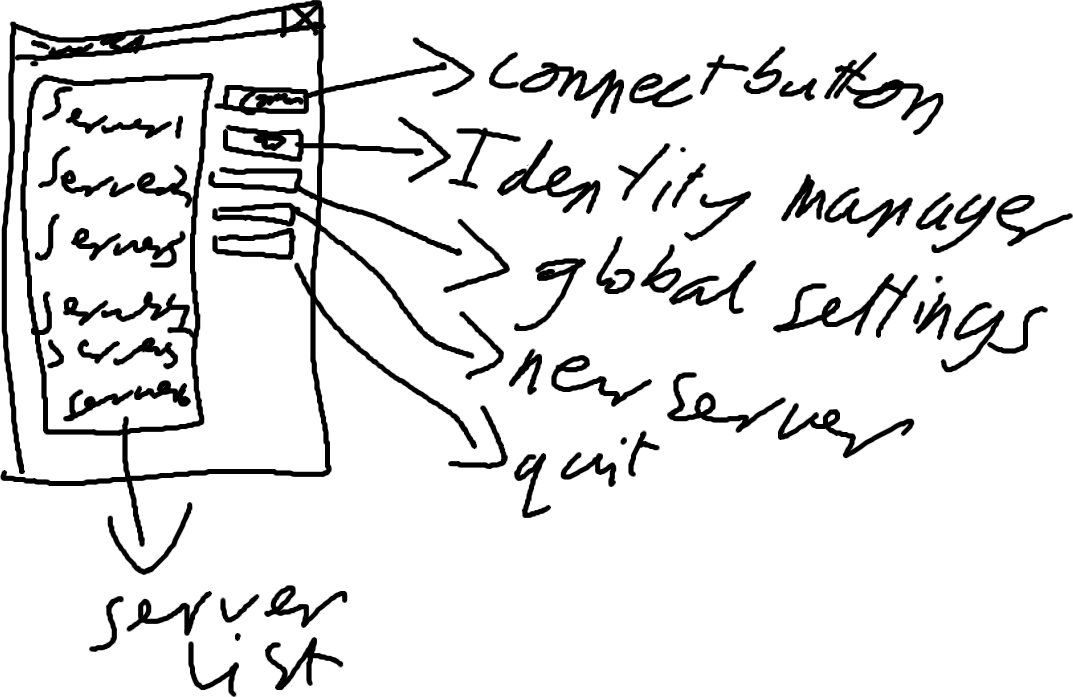 Server1
Server2
Server3
Server4
Server5
Server6
Conn
connect button
Identity manager
global settings
new server
quit
server
list